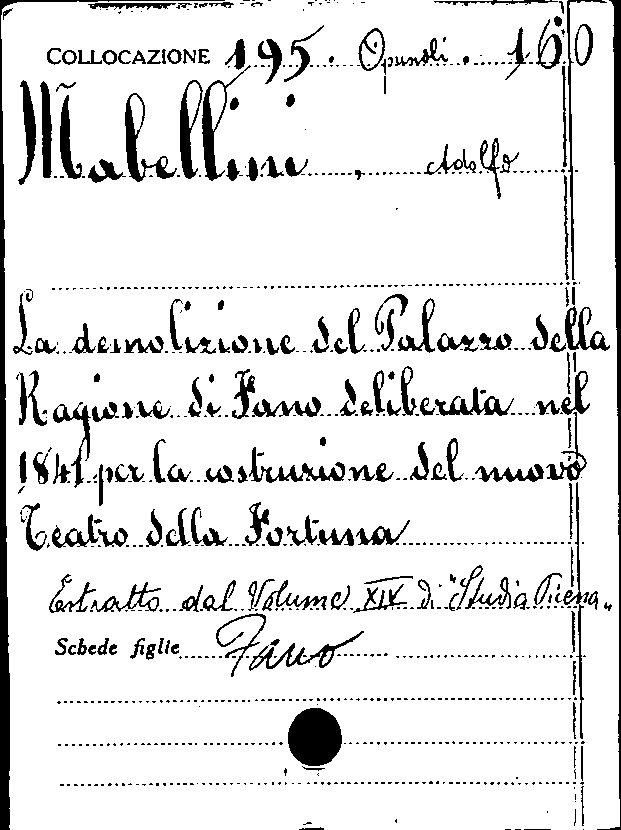 COLLOCAZIONE 195. Opuscoli. 160
Mabellini, Adolfo
La demolizione del Palazzo della
Ragione di Fano deliberata nel
1841 per la costruzione del nuovo
Teatro della Fortuna
Estratto dal Volume XIV di "Studia Picena"
Schede figlie Fano